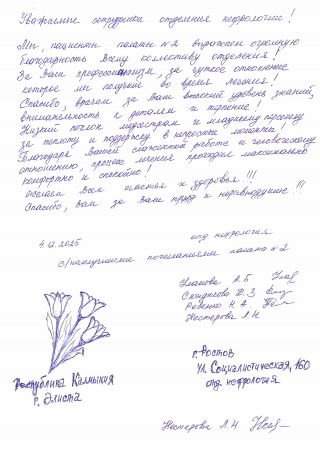 Уважаемые сотрудники отделения нефрологии!
Мы, пациенты палаты №2 выражаем огромную
благодарность всему коллективу отделения!
За Ваш профессионализм, за чуткое отношение
которое мы получили во время лечения!
Спасибо, врачам за Ваш высокий уровень знаний,
внимательность к деталям и терпение!
Низкий поклон медсестрам и младшему персоналу
за теплоту и поддержку в непростые моменты!
Благодаря Вашей слаженной работе и человеческому
отношению, процесс лечения проходил максимально
комфортно и спокойно!
Желаем Всем счастья и здоровья!!!
Спасибо, Вам за Ваш труд и неравнодушие!!!
4.12.2025 отд нефрология
с/наилучшими пожеланиями палата №2
А.Б
Э.З
Н.А.
Нестерова Л.Н
г. Ростов
ул. Социалистическая, 160
отд. нефрология
Республика Калмыкия
г. Элиста
Нестерова Л.Н